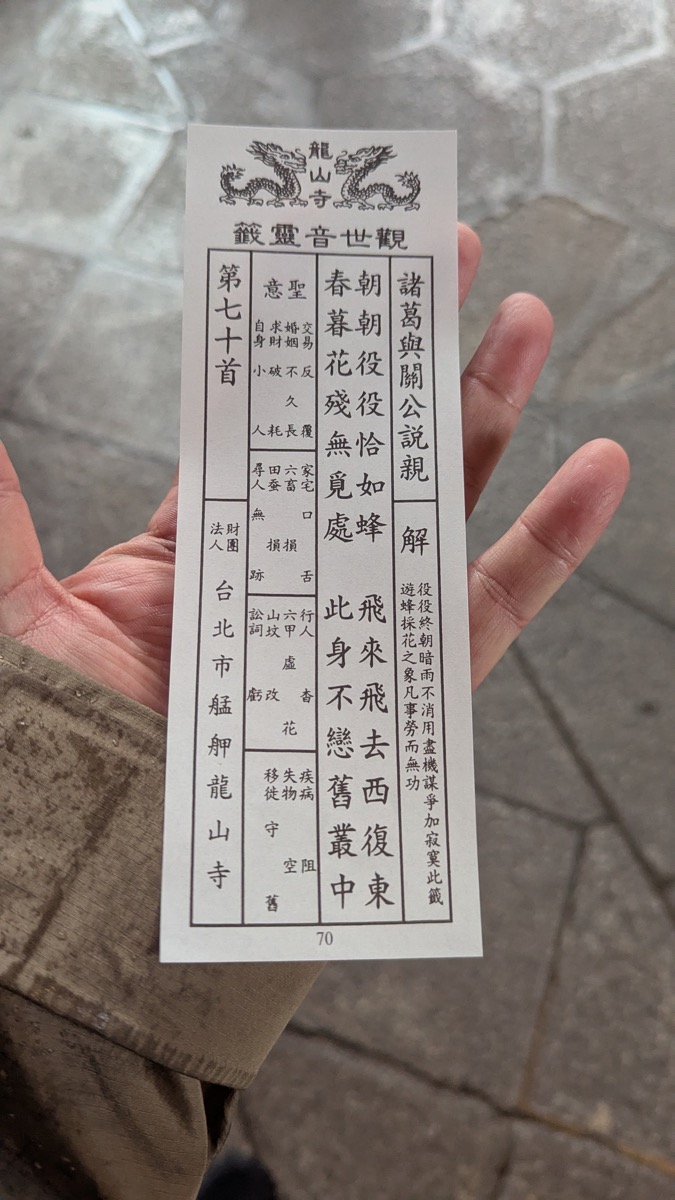 龍山寺
觀世音靈籤
諸葛與關公說親
解
役役終朝暗雨不消用盡機謀爭加寂寞此籤
遊蜂採花之象凡事勞而無功
朝朝役役恰如蜂 飛來飛去西復東
春暮花殘無覓處 此身不戀舊叢中
聖意
交易 反覆
婚姻 不久長
求財 破耗
自身 小人
家宅 口舌
六畜 損
田蚕 損
尋人 無跡
行人 杳
六甲 虛花
山坟 改
訟詞 虧
疾病 阻
失物 空
移徙 守舊
第七十首
財團
法人
台北市艋舺龍山寺
70